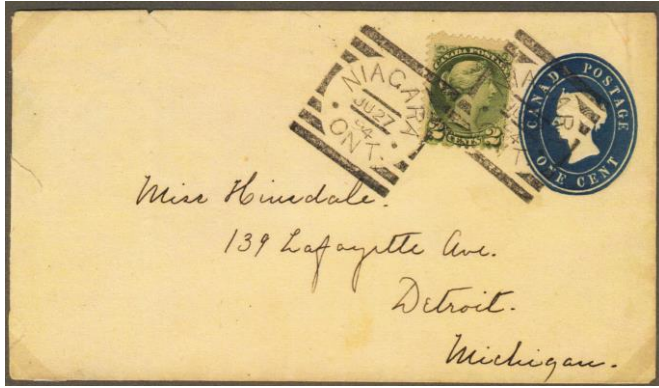 NIAGARA
JU 27
84
ONT.
CANADA POSTAGE
2 CENTS 2
CANADA POSTAGE
ONE CENT
Miss Hinsdale.
139 Lafayette Ave.
Detroit.
Michigan.